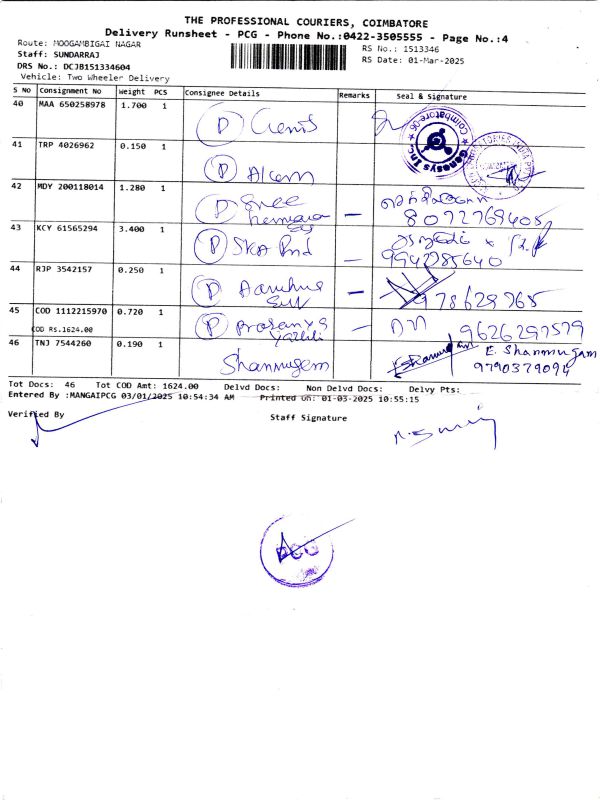 THE PROFESSIONAL COURIERS, COIMBATORE
Delivery Runsheet - PCG - Phone No.:0422-3505555 - Page No.:4
Route: MOOGAMBIGAI NAGAR
RS No.: 1513346
Staff: SUNDARRAJ
RS Date: 01-Mar-2025
DRS No.: DCJB151334604
Vehicle: Two Wheeler Delivery
S No Consignment No Weight PCS Consignee Details Remarks Seal & Signature
40 MAA 650258978 1.700 1 D
Genesys Inc. Coimbatore-06
41 TRP 4026962 0.150 1 D Alcem
42 MDY 200118014 1.280 1 D Sree
8072769405
43 KCY 61565294 3.400 1 D SKA Pnd
9942785640
44 RJP 3542157 0.250 1 D
978629765
45 COD 1112215970 0.720 1 D Prasanya 9626297579
COD RS.1624.00
46 TNJ 7544260 0.190 1 Shanmugam E. Shanmugam
9790379094
Tot Docs: 46 Tot COD Amt: 1624.00 Delvd Docs: Non Delvd Docs: Delvy Pts:
Entered By :MANGAIPCG 03/01/2025 10:54:34 AM Printed on: 01-03-2025 10:55:15
Verified By Staff Signature